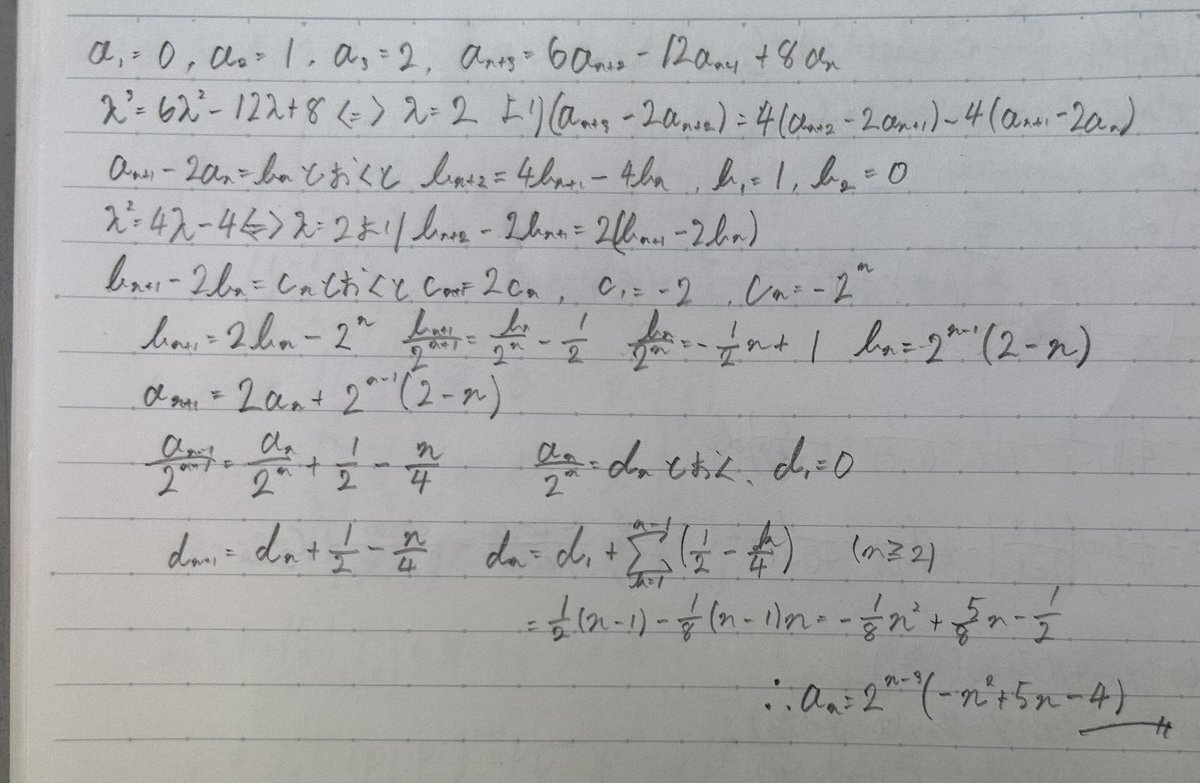 a₁=0, a₂=1, a₃=2, aₙ₊₃=6aₙ₊₂-12aₙ₊₁+8aₙ
λ³=6λ²-12λ+8 <=> λ=2 より (aₙ₊₃-2aₙ₊₂)=4(aₙ₊₂-2aₙ₊₁)-4(aₙ₊₁-2aₙ)
aₙ₊₁-2aₙ=bₙとおくと bₙ₊₂=4bₙ₊₁-4bₙ, b₁=1, b₂=0
λ²=4λ-4 <=> λ=2より bₙ₊₂-2bₙ₊₁=2(bₙ₊₁-2bₙ)
bₙ₊₁-2bₙ=cₙとおくと cₙ₊₁=2cₙ, c₁=-2, cₙ=-2ⁿ
bₙ₊₁=2bₙ-2ⁿ bₙ₊₁/2ⁿ⁺¹=bₙ/2ⁿ-1/2 bₙ/2ⁿ=-1/2n+1 bₙ=2ⁿ⁻¹(2-n)
aₙ₊₁=2aₙ+2ⁿ⁻¹(2-n)
aₙ₊₁/2ⁿ⁺¹=aₙ/2ⁿ+1/2-n/4 aₙ/2ⁿ=dₙとおく、d₁=0
dₙ₊₁=dₙ+1/2-n/4 dₙ=d₁+Σₖ₌₁ⁿ⁻¹(1/2-k/4) (n≧2)
=1/2(n-1)-1/8(n-1)n=-1/8n²+5/8n-1/2
∴aₙ=2ⁿ⁻³(-n²+5n-4)